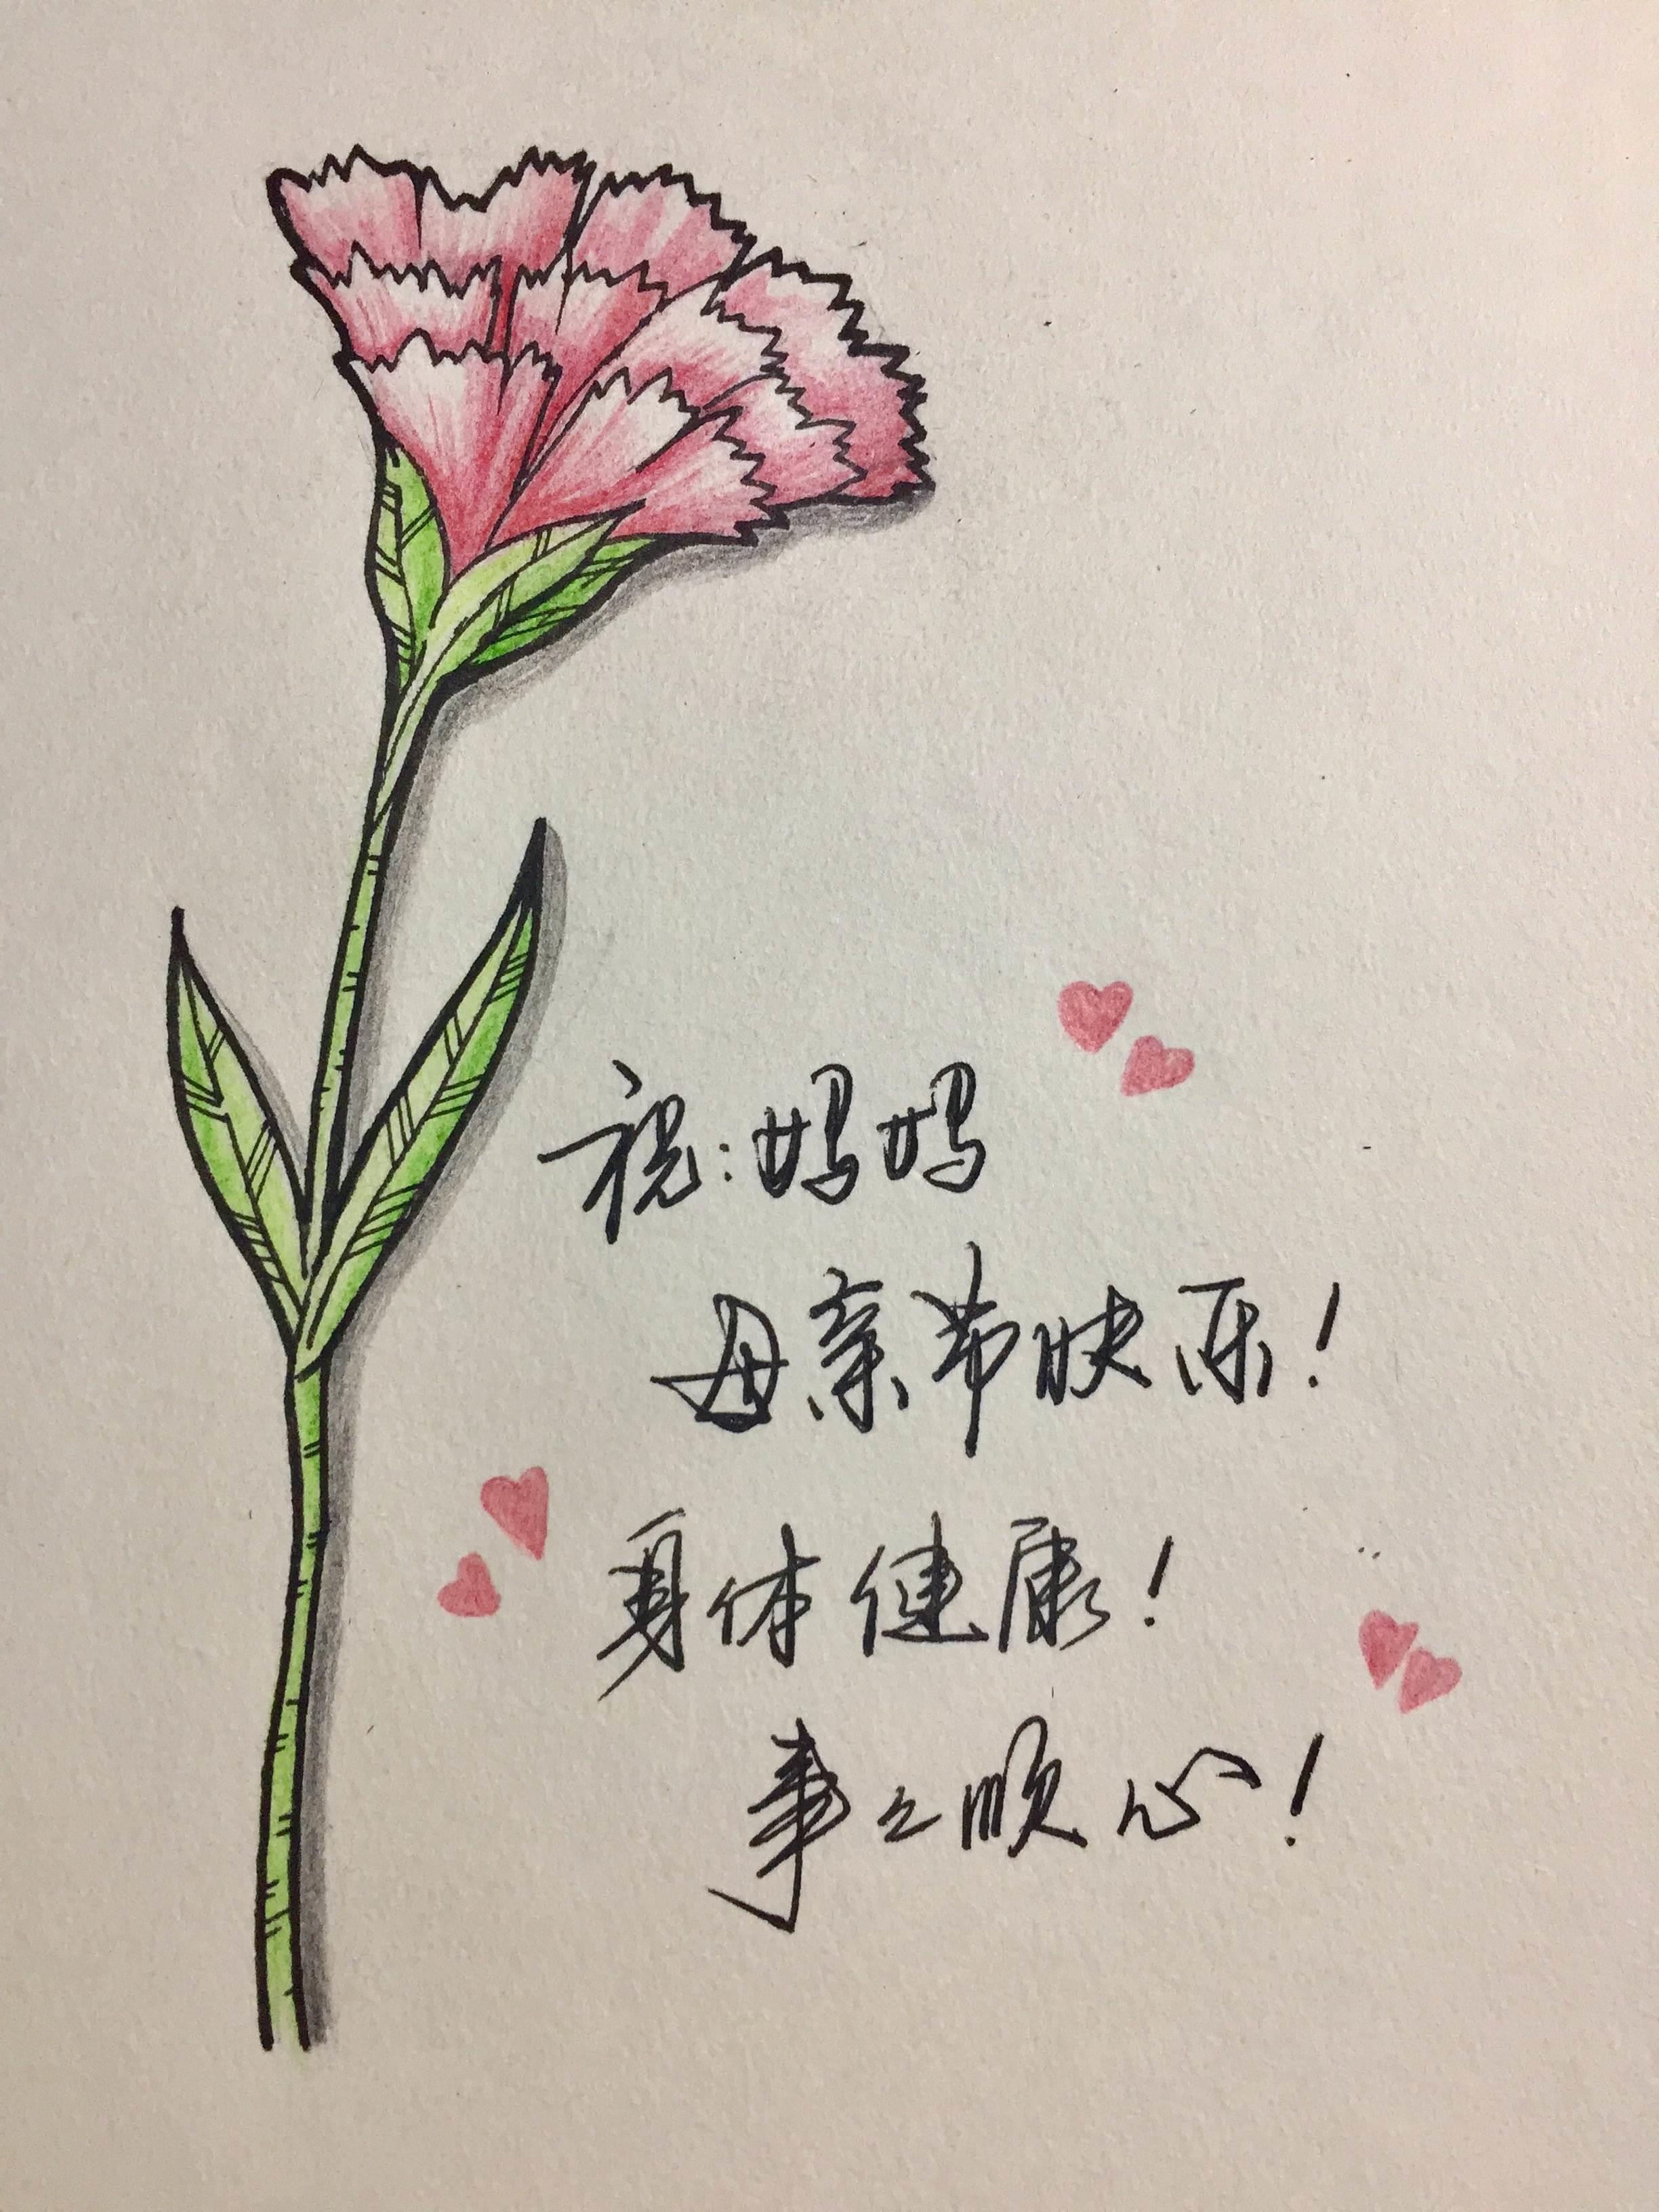 祝:妈妈
母亲节快乐!
身体健康!
事々顺心!